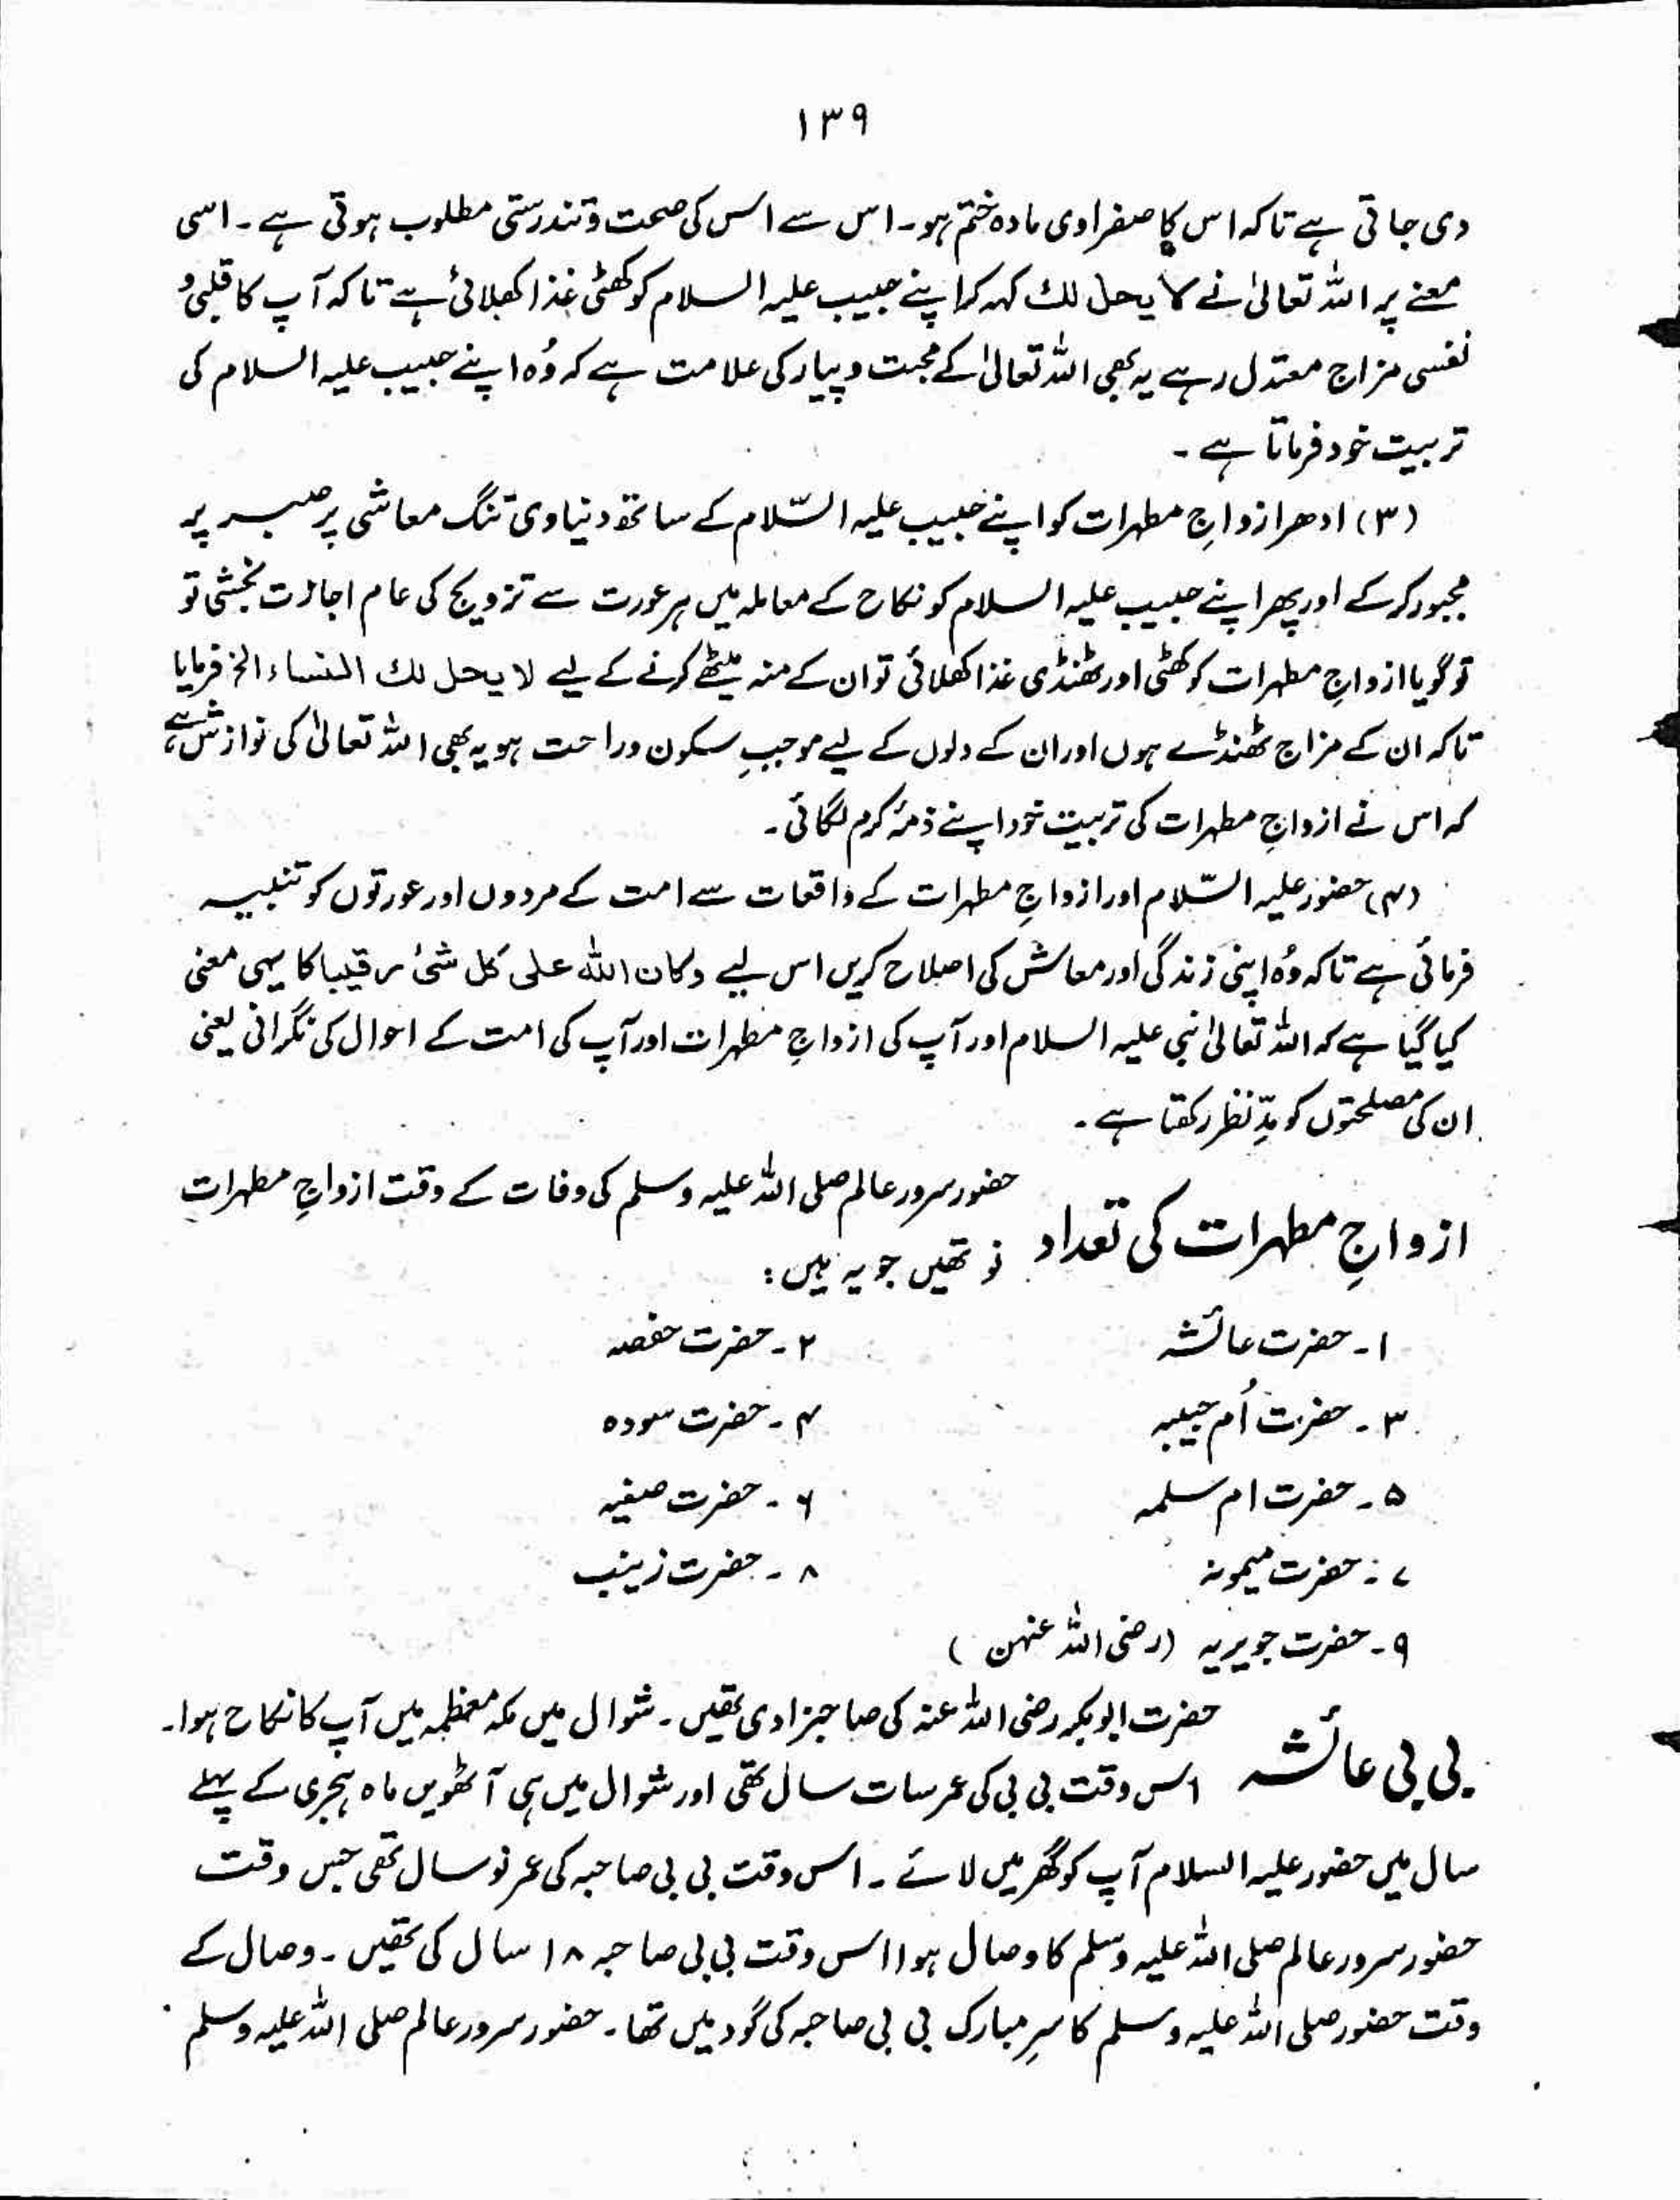 ۱۳۹
دی جاتی ہے تاکہ اس کا صفراوی مادہ ختم ہو۔ اس سے اس کی صحت و تندرستی مطلوب ہوتی ہے۔ اسی
معنے پر اللہ تعالیٰ نے لا یحل لك کہہ کر اپنے حبیب علیہ السلام کو کھٹی غذا کھلائی ہے تاکہ آپ کا قلبی و
نفسی مزاج معتدل رہے یہ بھی اللہ تعالیٰ کے محبت و پیار کی علامت ہے کہ وُہ اپنے حبیب علیہ السلام کی
تربیت خود فرماتا ہے۔
(۳) ادھر ازواجِ مطہرات کو اپنے حبیب علیہ السّلام کے ساتھ دنیاوی تنگ معاشی پر صبر پر
مجبور کر کے اور پھر اپنے حبیب علیہ السلام کو نکاح کے معاملہ میں ہر عورت سے تزویج کی عام اجازت بخشی تو
تو گویا ازواجِ مطہرات کو کھٹی اور ٹھنڈی غذا کھلائی تو ان کے منہ میٹھے کرنے کے لیے لا یحل لك النساء الخ فرمایا
تاکہ ان کے مزاج ٹھنڈے ہوں اور ان کے دلوں کے لیے موجبِ سکون و راحت ہو یہ بھی اللہ تعالیٰ کی نوازش ہے،
کہ اس نے ازواجِ مطہرات کی تربیت خود اپنے ذمۂ کرم لگائی۔
(۴) حضور علیہ السّلام اور ازواجِ مطہرات کے واقعات سے امت کے مردوں اور عورتوں کو تنبیہ
فرمائی ہے تاکہ وُہ اپنی زندگی اور معاش کی اصلاح کریں اس لیے وکان الله علی کل شئ رقیبا کا یہی معنی
کیا گیا ہے کہ اللہ تعالیٰ نبی علیہ السلام اور آپ کی ازواجِ مطہرات اور آپ کی امت کے احوال کی نگرانی یعنی
ان کی مصلحتوں کو مدِّ نظر رکھتا ہے۔
ازواجِ مطہرات کی تعداد
حضور سرورِ عالم صلی اللہ علیہ وسلم کی وفات کے وقت ازواجِ مطہرات
نو تھیں جو یہ ہیں:
۱۔ حضرت عائشہ ۲۔ حضرت حفصہ
۳۔ حضرت اُم حبیبہ ۴۔ حضرت سودہ
۵۔ حضرت ام سلمہ ۶۔ حضرت صفیہ
۷۔ حضرت میمونہ ۸۔ حضرت زینب
۹۔ حضرت جویریہ (رضی اللہ عنہن)
بی بی عائشہ
حضرت ابوبکر رضی اللہ عنہ کی صاحبزادی تھیں۔ شوال میں مکہ معظمہ میں آپ کا نکاح ہوا۔
اس وقت بی بی کی عمر سات سال تھی اور شوال میں ہی آٹھویں ماہ ہجری کے پہلے
سال میں حضور علیہ السلام آپ کو گھر میں لائے۔ اس وقت بی بی صاحبہ کی عمر نو سال تھی جس وقت
حضور سرورِ عالم صلی اللہ علیہ وسلم کا وصال ہوا اس وقت بی بی صاحبہ ۱۸ سال کی تھیں۔ وصال کے
وقت حضور صلی اللہ علیہ وسلم کا سرِ مبارک بی بی صاحبہ کی گود میں تھا۔ حضور سرورِ عالم صلی اللہ علیہ وسلم